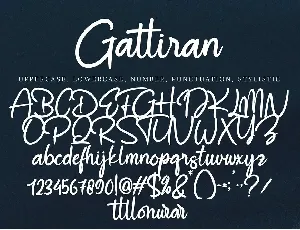 Gattiran
UPPERCASE, LOWERCASE, NUMBER, PUNCTUATION, STYLISTIC
ABCDEFGHIJKLMN
OPQRSTUVWXYZ
abcdefghijklmnopqrstuvwxyz
1234567890!@#$%&*()-+:;"?/